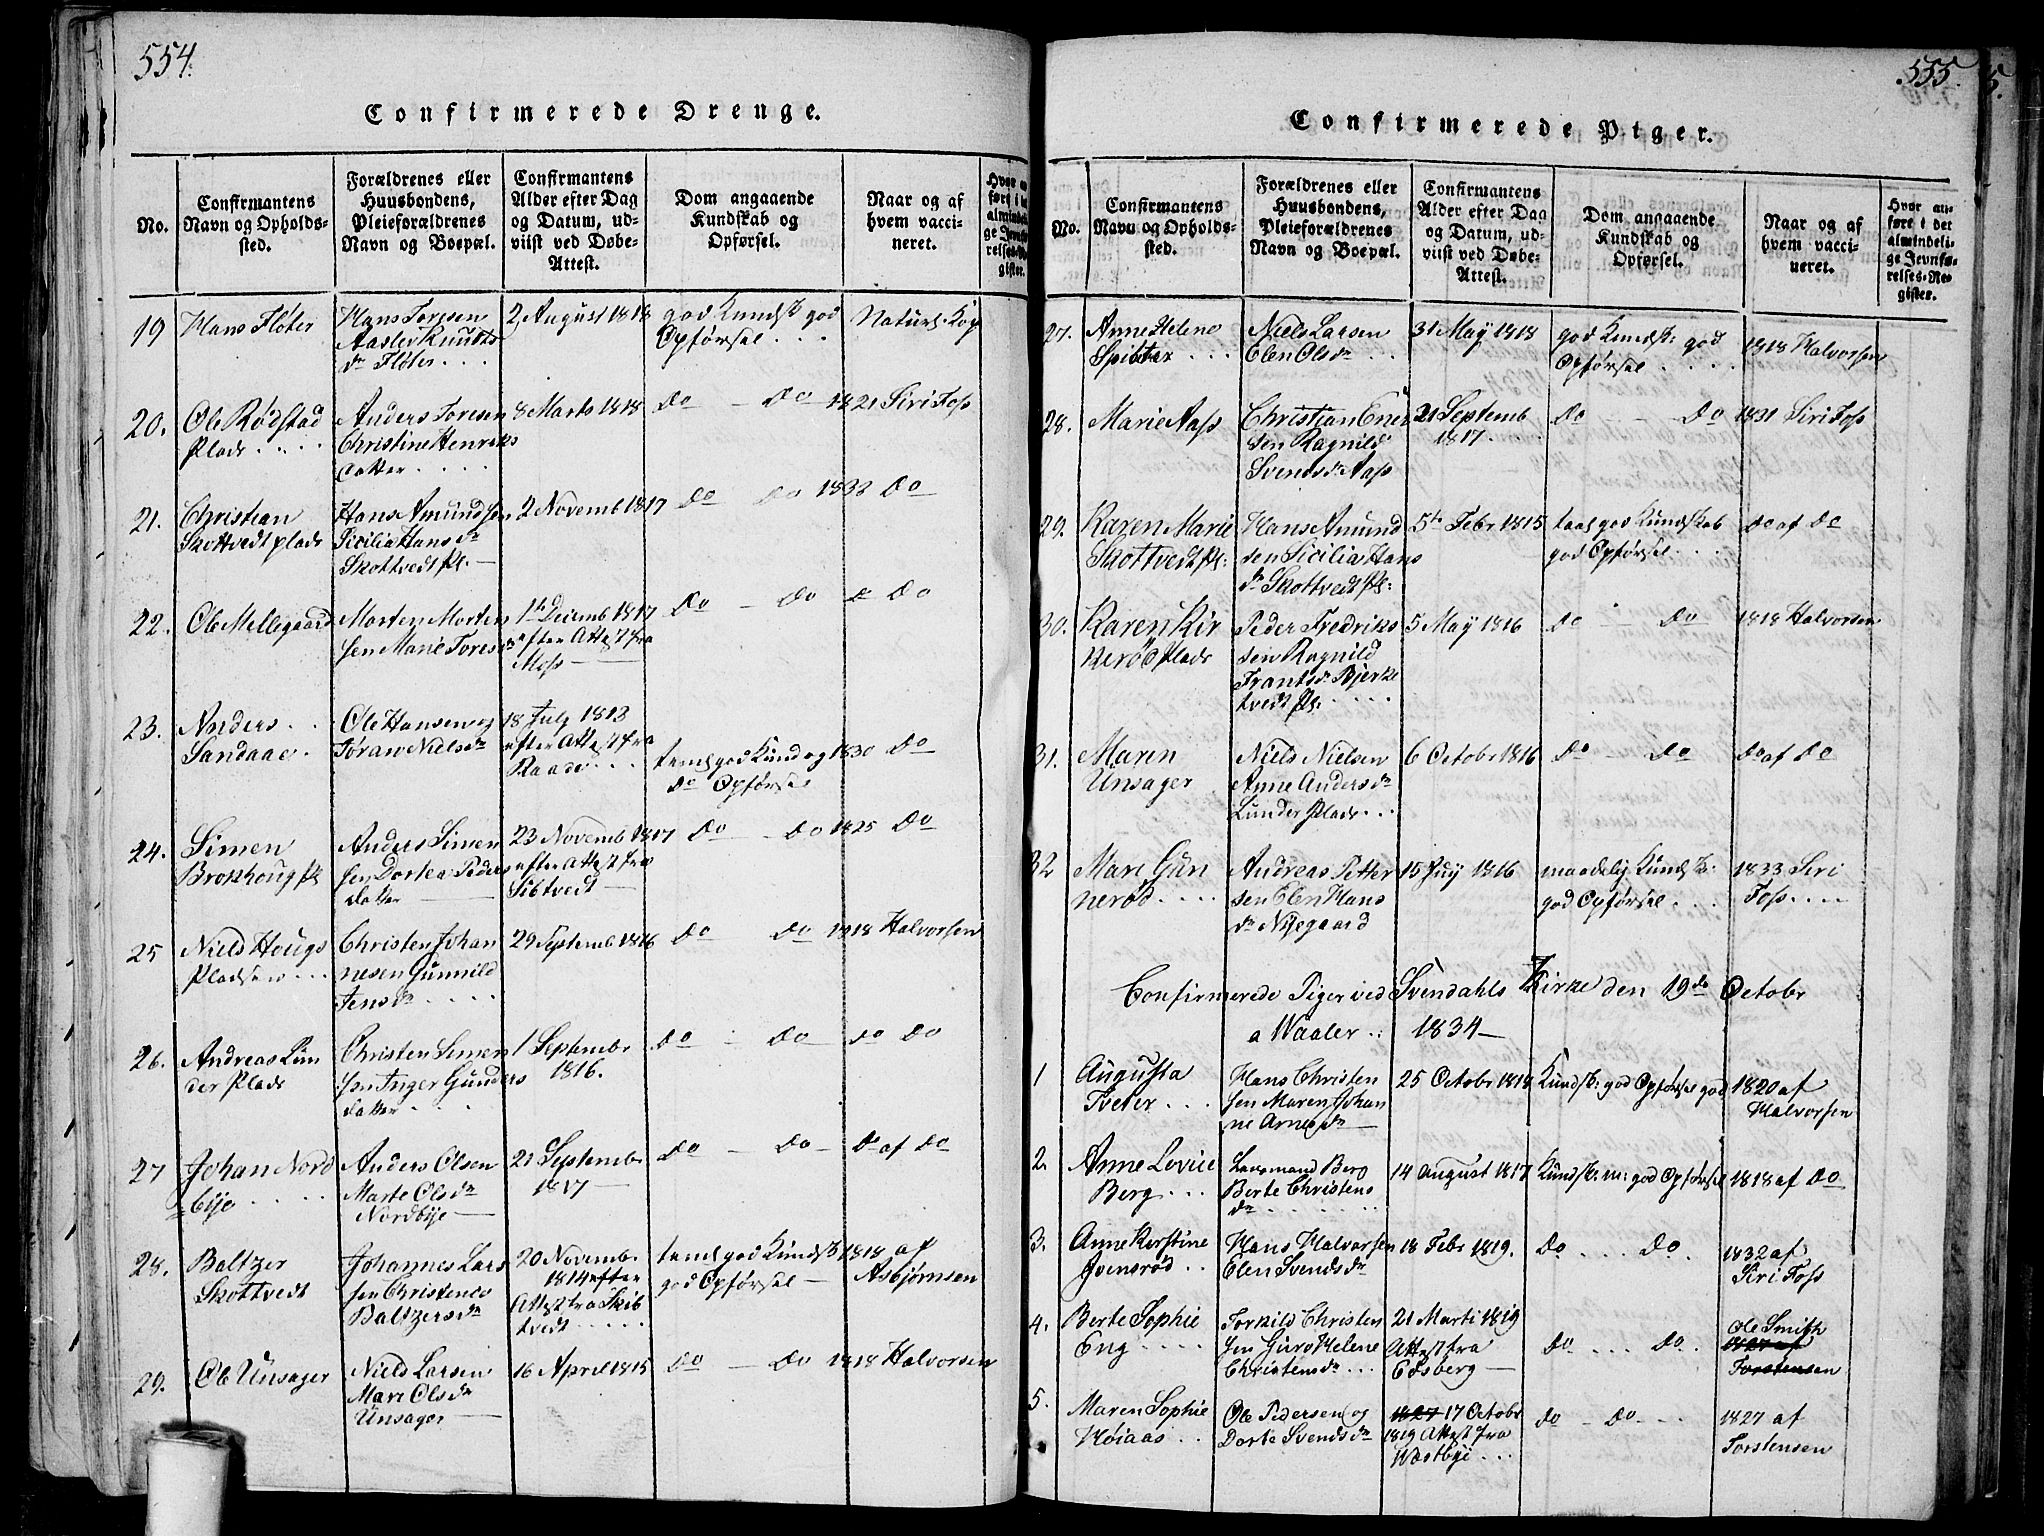 554.
Confirmerede Drenge.
No.
Confirmantens
Navn og Opholds-
sted.
Forældrenes eller
Huusbondens,
Pleieforældrenes
Navn og Boepæl.
Confirmantens
Alder efter Dag
og Datum, ud-
viist ved Døbe-
Attest.
Dom angaaende
Kundskab og
Opførsel.
Naar og af
hvem vacci-
neret.
19
Hans Fløter
Hans Torgsen
Aaslev Knuts
dr Fløter . . .
2 August 1818
god Kundsk god
Opførsel . . .
Naturl. Kop
20.
Ole Rødstad
Plads . . . .
Anders Toresen
Christine Henriks
datter . . . .
8 Marts 1818
Do — Do
1821 Siri Foss
21.
Christian
Skottvedt plads
Hans Amundsen
Sicilia Hans dr
Skottvedt Pl. —
2 Novemb 1817
Do Do
1833 Do
22.
Ole Mellegaard
Morten Morten
sen Marie Tores dr
1te Decemb 1817
efter Attest fra
Moss —
Do — Do
Do Do
23.
Anders . .
Sandaae .
Ole Hansen og
Søran Niels dr
18 July 1813
efter Attest fra
Raade . . . .
temlgod Kund og
do Opførsel
1830 Do
24.
Simen
Brokhoug Pl
Anders Simen
sen Dortea Peders
datter —
23 Novemb 1817
efter Attest fra
Sibtvedt —
Do — Do
1825 Do
25
Niels Hougs
Pladsen . . .
Christen Johan
nesen Gunnild
Jens dr . . . .
29 Septemb 1816
Do Do
1818 Halvorsen
26.
Andreas Lun
der Plads
Christen Simen
sen Inger Gunders
datter . . .
1 Septembr
1816.
Do - Do
Do Do
27
Johan Nord
bye . . . .
Anders Olsen
Marte Ols dr
Nordbye —
21 Septembr
1817 —
Do — Do —
Do af Do
28.
Baltzer
Skottvedt
Johannes Lars
sen Christence
Baltzers dr
20 Novembr
1814 efter
Attest fra Skib
tvedt . . . . .
temlgod Kundsk
god Opførsel —
1818 af
Asbjørnsen
29.
Ole Unsager
Niels Larsen
Mari Ols dr
Unsager —
16 April 1815
Do — Do
1818 Halvorsen
555.
Confirmerede Piger.
No.
Confirmantens
Navn og Opholds-
sted.
Forældrenes eller
Huusbondens,
Pleieforældrenes
Navn og Boepæl.
Confirmantens
Alder efter Dag
og Datum, ud-
viist ved Døbe-
Attest.
Dom angaaende
Kundskab og
Opførsel.
Naar og af
hvem vacci-
neret.
Hvor an-
ført i det
almindeli-
ge Jevnfø-
relses-Re-
gister.
27.
Anne Helene
Spibter . . .
Niels Larsen
Elen Ols dr . .
31 May 1818
god Kundsk: god
Opførsel . . . .
1818 Halvorsen
28.
Marie Aass
Christian Ener
sen Ragnild
Svends dr Aass
21 Septemb
1817 . . . .
Do — — Do
1831 Siri Foss
29.
Karen Marie
Skottvedt Pl:
Hans Amund
sen Sicilia Hans
dr Skottvedt Pl:
5te Febr 1815
taal god Kundskab
god Opførsel . . .
Do af Do
30.
Karen Kir
kerød Plads
Peder Fredriks
sen Ragnild
Frants dr Bjerke
tvedt Pl. . . . .
5 May 1816
Do — Do
1818 Halvorsen
31.
Maren
Unsager
Niels Nielsen
Anne Anders dr
Lunder Plads . . .
6 Octobr 1816
Do — Do
Do af Do
32
Mari Gun
nerød . . . .
Andreas Petter
sen Elen Hans
dr Nyegaard
15 July 1816
maadelig Kundsk:
god Opførsel . . .
1833 Siri
Foss . . . .
Confirmerede Piger ved Svendahls Kirke den 19de Octobr
a Waaler . . 1834 —
1
Augusta
Tveter . . .
Hans Christen
sen Maren Johan
ne Arnes dr —
25 Octobr 1818
Kundsk: god Opførsel god
1820 af
Halvorsen
2.
Anne Lovise
Berg . . .
Lensmand Berg
Berte Christens
dr . . . . . .
14 August 1817
Kundsk: m: god Opførsel
1818 af Do
3.
Anne Kerstine
Svensrød . .
Hans Halvorsen
Elen Svends dr
18 Febr 1819.
Do . . . Do .
1832 af
Siri Foss
4.
Berte Sophie
Eng . . . .
Torkild Christen
sen Guro Helene
Christens dr . . .
21 Marti 1819
Attest fra
Edsberg —
Do . . . . Do .
Ole Smith
1827 af
Torstensen
5.
Maren Sophie
Høiaas . .
Ole Pedersen og
Dorte Svends dr
1827 17 Octobr
1819 Attest fra
Westbye . . .
Do — Do - - -
1827 af
Torstensen